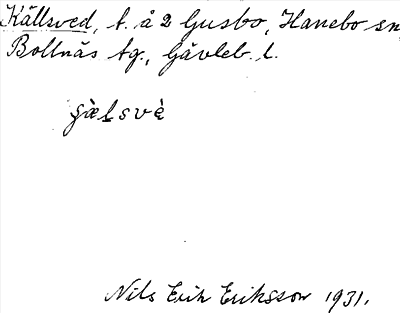 Källsved, t. å 2 Gusbo, Hanebo sn,
Bollnäs tg., Gävleb. l.
s̀æ̀lsvè
Nils Erik Eriksson 1931.